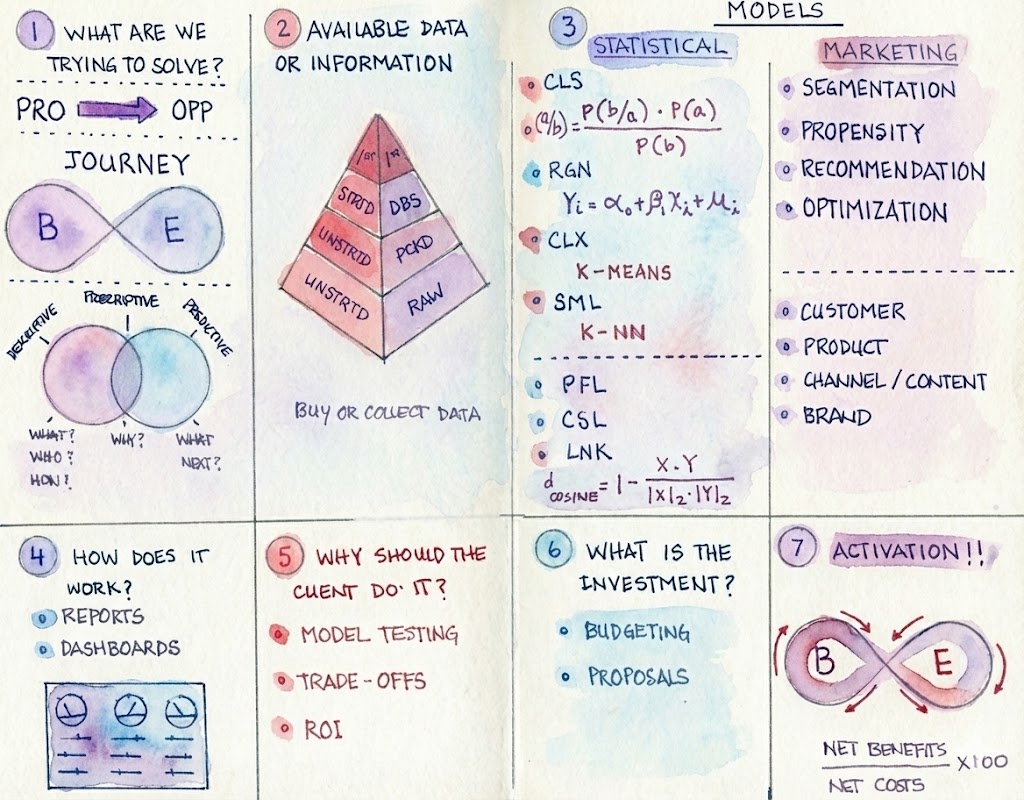 1 WHAT ARE WE
TRYING TO SOLVE?
PRO OPP
JOURNEY
B E
DESCRIPTIVE
PRESCRIPTIVE
PREDICTIVE
WHAT?
WHO?
HOW?
WHY?
WHAT
NEXT?
2 AVAILABLE DATA
OR INFORMATION
1ST 1ST
STRTD DBS
UNSTRTD PCKD
UNSTRTD RAW
BUY OR COLLECT DATA
MODELS
3 STATISTICAL
CLS
(a/b) = P(b/a) · P(a)
P(b)
RGN
Yi = α0 + β1 Xi + μi
CLX
K-MEANS
SML
K-NN
PFL
CSL
LNK
d COSINE = 1 - X.Y
|X|2 · |Y|2
MARKETING
SEGMENTATION
PROPENSITY
RECOMMENDATION
OPTIMIZATION
CUSTOMER
PRODUCT
CHANNEL / CONTENT
BRAND
4 HOW DOES IT
WORK?
REPORTS
DASHBOARDS
5 WHY SHOULD THE
CLIENT DO· IT?
MODEL TESTING
TRADE-OFFS
ROI
6 WHAT IS THE
INVESTMENT?
BUDGETING
PROPOSALS
7 ACTIVATION!!
B E
NET BENEFITS
NET COSTS
X100